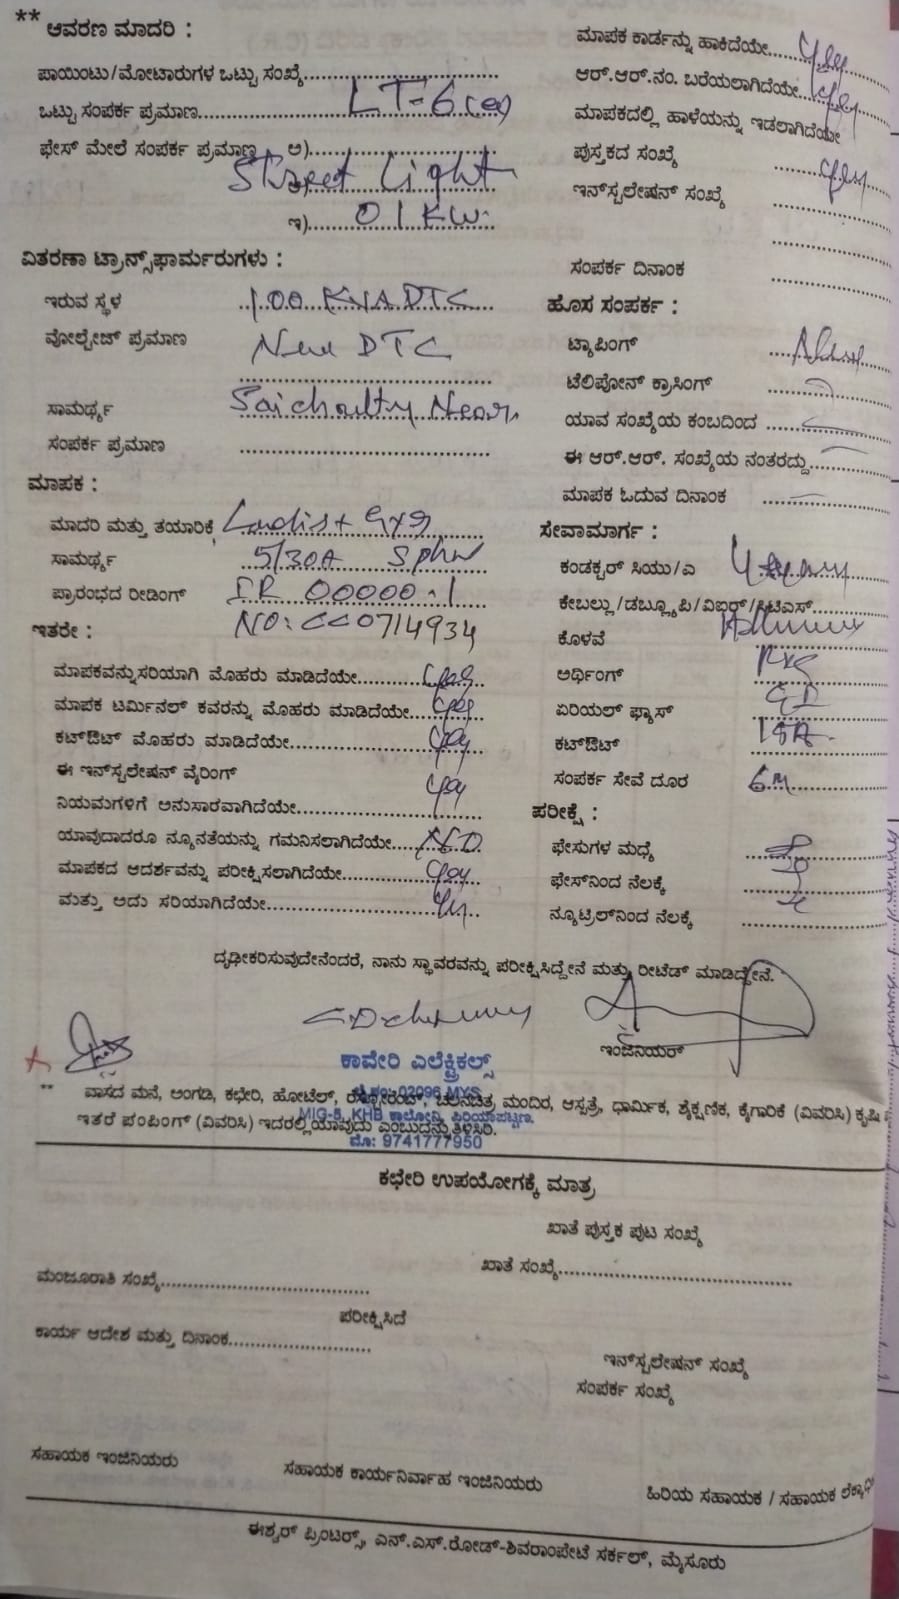 ** ಆವರಣ ಮಾದರಿ :
ಪಾಯಿಂಟು/ಮೋಟಾರುಗಳ ಒಟ್ಟು ಸಂಖ್ಯೆ
ಒಟ್ಟು ಸಂಪರ್ಕ ಪ್ರಮಾಣ LT-6
ಫೇಸ್ ಮೇಲೆ ಸಂಪರ್ಕ ಪ್ರಮಾಣ ಅ)
Street Light
ಇ) 01 KW.
ವಿತರಣಾ ಟ್ರಾನ್ಸ್‌ಫಾರ್ಮರುಗಳು :
ಇರುವ ಸ್ಥಳ 100 KVA DTC
ವೋಲ್ಟೇಜ್ ಪ್ರಮಾಣ New DTC
ಸಾಮರ್ಥ್ಯ Saichoultry Near
ಸಂಪರ್ಕ ಪ್ರಮಾಣ
ಮಾಪಕ :
ಮಾದರಿ ಮತ್ತು ತಯಾರಿಕೆ Landis +
ಸಾಮರ್ಥ್ಯ 5/30A
ಪ್ರಾರಂಭದ ರೀಡಿಂಗ್ IR 00000.1
ಇತರೇ : NO: CC0714934
ಮಾಪಕವನ್ನು ಸರಿಯಾಗಿ ಮೊಹರು ಮಾಡಿದೆಯೇ yes
ಮಾಪಕ ಟರ್ಮಿನಲ್ ಕವರನ್ನು ಮೊಹರು ಮಾಡಿದೆಯೇ yes
ಕಟ್‌ಔಟ್ ಮೊಹರು ಮಾಡಿದೆಯೇ yes
ಈ ಇನ್‌ಸ್ಟಲೇಷನ್ ವೈರಿಂಗ್
ನಿಯಮಗಳಿಗೆ ಅನುಸಾರವಾಗಿದೆಯೇ yes
ಯಾವುದಾದರೂ ನ್ಯೂನತೆಯನ್ನು ಗಮನಿಸಲಾಗಿದೆಯೇ
ಮಾಪಕದ ಆದರ್ಶವನ್ನು ಪರೀಕ್ಷಿಸಲಾಗಿದೆಯೇ yes
ಮತ್ತು ಅದು ಸರಿಯಾಗಿದೆಯೇ yes
ಮಾಪಕ ಕಾರ್ಡನ್ನು ಹಾಕಿದೆಯೇ yes
ಆರ್.ಆರ್.ನಂ. ಬರೆಯಲಾಗಿದೆಯೇ yes
ಮಾಪಕದಲ್ಲಿ ಹಾಳೆಯನ್ನು ಇಡಲಾಗಿದೆಯೇ
ಪುಸ್ತಕದ ಸಂಖ್ಯೆ yes
ಇನ್‌ಸ್ಟಲೇಷನ್ ಸಂಖ್ಯೆ
ಸಂಪರ್ಕ ದಿನಾಂಕ
ಹೊಸ ಸಂಪರ್ಕ :
ಟ್ಯಾಪಿಂಗ್
ಟೆಲಿಪೋನ್ ಕ್ರಾಸಿಂಗ್
ಯಾವ ಸಂಖ್ಯೆಯ ಕಂಬದಿಂದ
ಈ ಆರ್.ಆರ್. ಸಂಖ್ಯೆಯ ನಂತರದ್ದು
ಮಾಪಕ ಓದುವ ದಿನಾಂಕ
ಸೇವಾಮಾರ್ಗ :
ಕಂಡಕ್ಟರ್ ಸಿಯು/ಎ
ಕೇಬಲ್ಲು/ಡಬ್ಲ್ಯೂಪಿ/ವಿಐಆರ್/ಸಿಟಿಎಸ್
ಕೊಳವೆ
ಅರ್ಥಿಂಗ್
ಏರಿಯಲ್ ಫ್ಯಾಸ್ GI
ಕಟ್‌ಔಟ್ 15A
ಸಂಪರ್ಕ ಸೇವೆ ದೂರ 6M
ಪರೀಕ್ಷೆ :
ಫೇಸುಗಳ ಮಧ್ಯೆ
ಫೇಸ್‌ನಿಂದ ನೆಲಕ್ಕೆ
ನ್ಯೂಟ್ರಲ್‌ನಿಂದ ನೆಲಕ್ಕೆ
ದೃಢೀಕರಿಸುವುದೇನೆಂದರೆ, ನಾನು ಸ್ಥಾವರವನ್ನು ಪರೀಕ್ಷಿಸಿದ್ದೇನೆ ಮತ್ತು ರೀಟೆಡ್ ಮಾಡಿದ್ದೇನೆ.
ಇಂಜಿನಿಯರ್
ಕಾವೇರಿ ಎಲೆಕ್ಟ್ರಿಕಲ್ಸ್
02096 MYS
MIG-8, KHB ಕಾಲೋನಿ, ಪಿರಿಯಾಪಟ್ಟಣ.
ಮೊ: 9741777950
** ವಾಸದ ಮನೆ, ಅಂಗಡಿ, ಕಛೇರಿ, ಹೋಟೆಲ್, ರೆಸ್ಟೋರೆಂಟ್, ಚಲನಚಿತ್ರ, ಮಂದಿರ, ಆಸ್ಪತ್ರೆ, ಧಾರ್ಮಿಕ, ಶೈಕ್ಷಣಿಕ, ಕೈಗಾರಿಕೆ (ವಿವರಿಸಿ) ಕೃಷಿ
ಇತರೆ ಪಂಪಿಂಗ್ (ವಿವರಿಸಿ) ಇದರಲ್ಲಿ ಯಾವುದು ಎಂಬುದನ್ನು ತಿಳಿಸಿರಿ.
ಕಛೇರಿ ಉಪಯೋಗಕ್ಕೆ ಮಾತ್ರ
ಖಾತೆ ಪುಸ್ತಕ ಪುಟ ಸಂಖ್ಯೆ
ಖಾತೆ ಸಂಖ್ಯೆ
ಮಂಜೂರಾತಿ ಸಂಖ್ಯೆ
ಪರೀಕ್ಷಿಸಿದೆ
ಕಾರ್ಯ ಆದೇಶ ಮತ್ತು ದಿನಾಂಕ
ಇನ್‌ಸ್ಟಲೇಷನ್ ಸಂಖ್ಯೆ
ಸಂಪರ್ಕ ಸಂಖ್ಯೆ
ಸಹಾಯಕ ಇಂಜಿನಿಯರು
ಸಹಾಯಕ ಕಾರ್ಯನಿರ್ವಾಹ ಇಂಜಿನಿಯರು
ಹಿರಿಯ ಸಹಾಯಕ / ಸಹಾಯಕ
ಈಶ್ವರ್ ಪ್ರಿಂಟರ್ಸ್, ಎನ್.ಎಸ್.ರೋಡ್-ಶಿವರಾಂಪೇಟೆ ಸರ್ಕಲ್, ಮೈಸೂರು